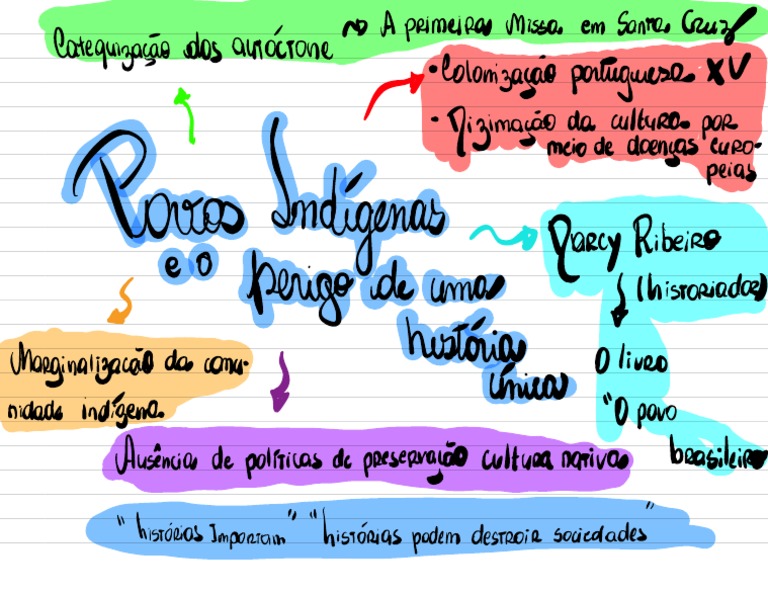 Catequização dos autóctone ~> A primeira Missa em Santa Cruz
• Colonização portuguesa XV
• Dizimação da cultura por
meio de doenças euro-
peias
Povos Indígenas
e o perigo de uma
história
única
Darcy Ribeiro
(historiador)
O livro
"O povo
brasileiro
Marginalização da comu-
nidade indígena
Ausência de políticas de preservação cultura nativa
"histórias Importam" "histórias podem destroir sociedades"